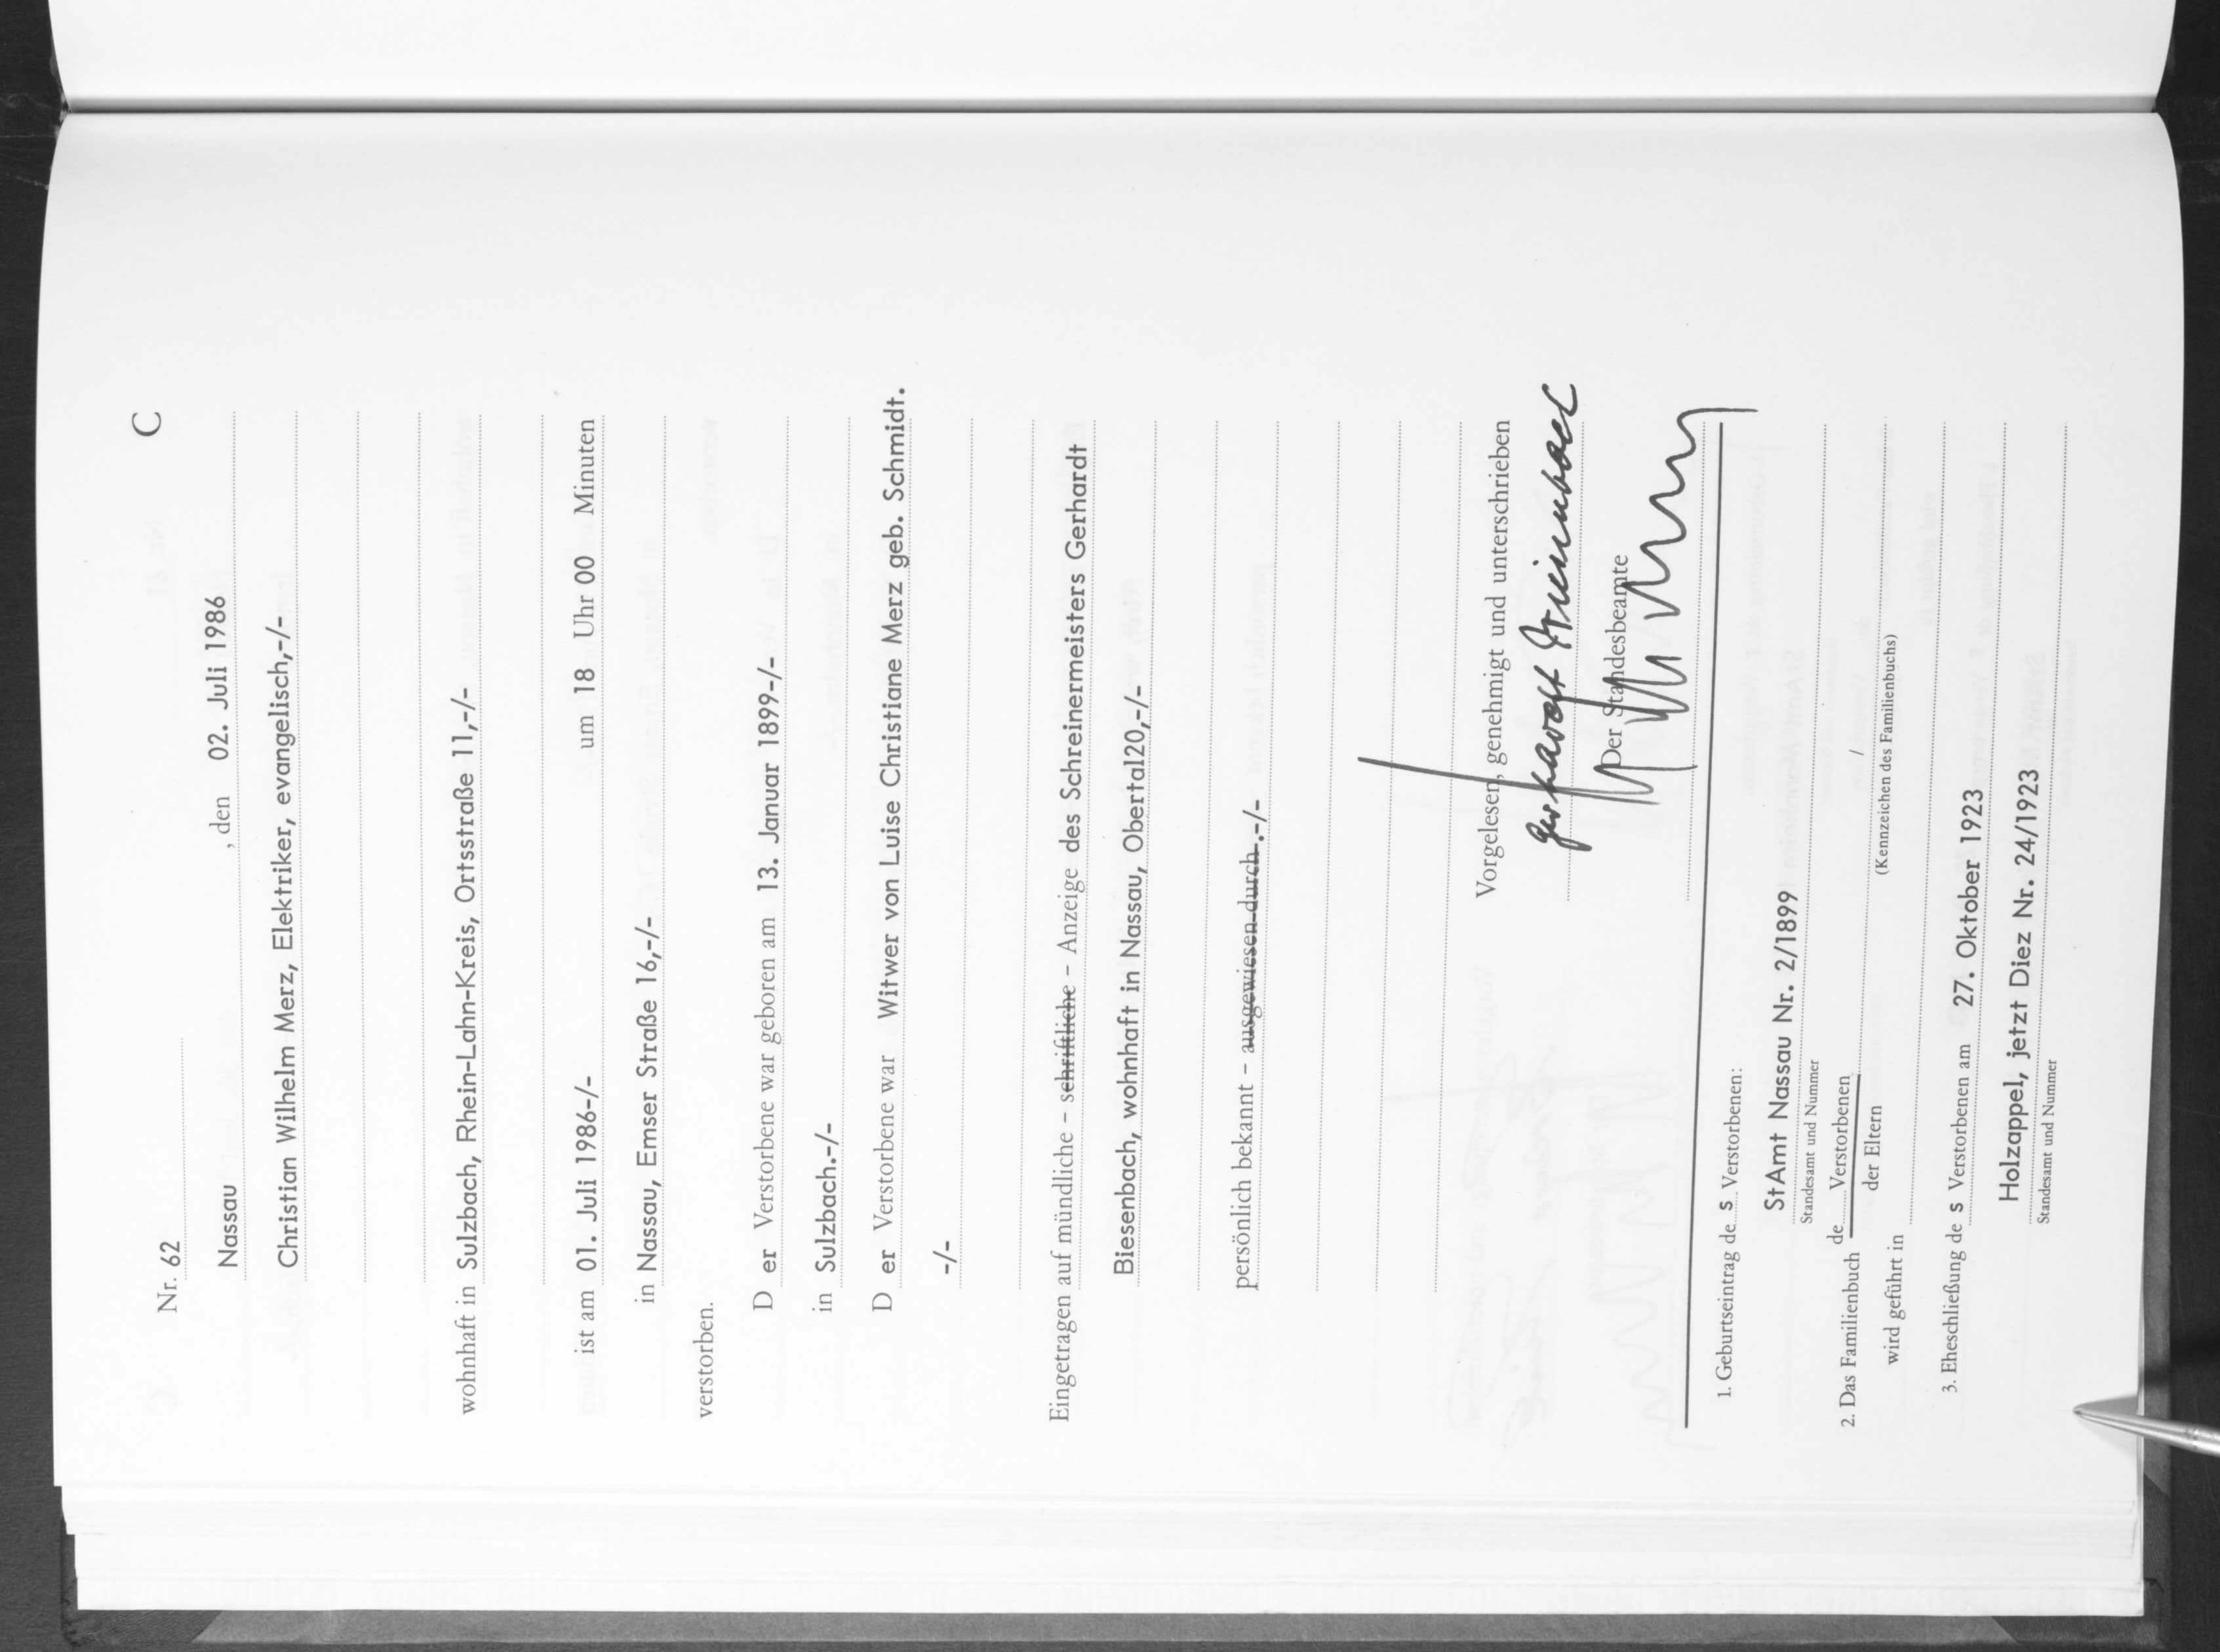 C
Nr. 62
Nassau , den 02. Juli 1986
Christian Wilhelm Merz, Elektriker, evangelisch,-/-
wohnhaft in Sulzbach, Rhein-Lahn-Kreis, Ortsstraße 11,-/-
ist am 01. Juli 1986-/- um 18 Uhr 00 Minuten
in Nassau, Emser Straße 16,-/-
verstorben.
D er Verstorbene war geboren am 13. Januar 1899-/-
in Sulzbach.-/-
D er Verstorbene war Witwer von Luise Christiane Merz geb. Schmidt.
-/-
Eingetragen auf mündliche - schriftliche - Anzeige des Schreinermeisters Gerhardt
Biesenbach, wohnhaft in Nassau, Obertal20,-/-
persönlich bekannt - ausgewiesen durch .-/-
Vorgelesen, genehmigt und unterschrieben
Gerhardt Biesenbach
Der Standesbeamte
1. Geburtseintrag de s Verstorbenen:
StAmt Nassau Nr. 2/1899
Standesamt und Nummer
2. Das Familienbuch de Verstorbenen
der Eltern
/
wird geführt in
(Kennzeichen des Familienbuchs)
3. Eheschließung de s Verstorbenen am 27. Oktober 1923
Holzappel, jetzt Diez Nr. 24/1923
Standesamt und Nummer